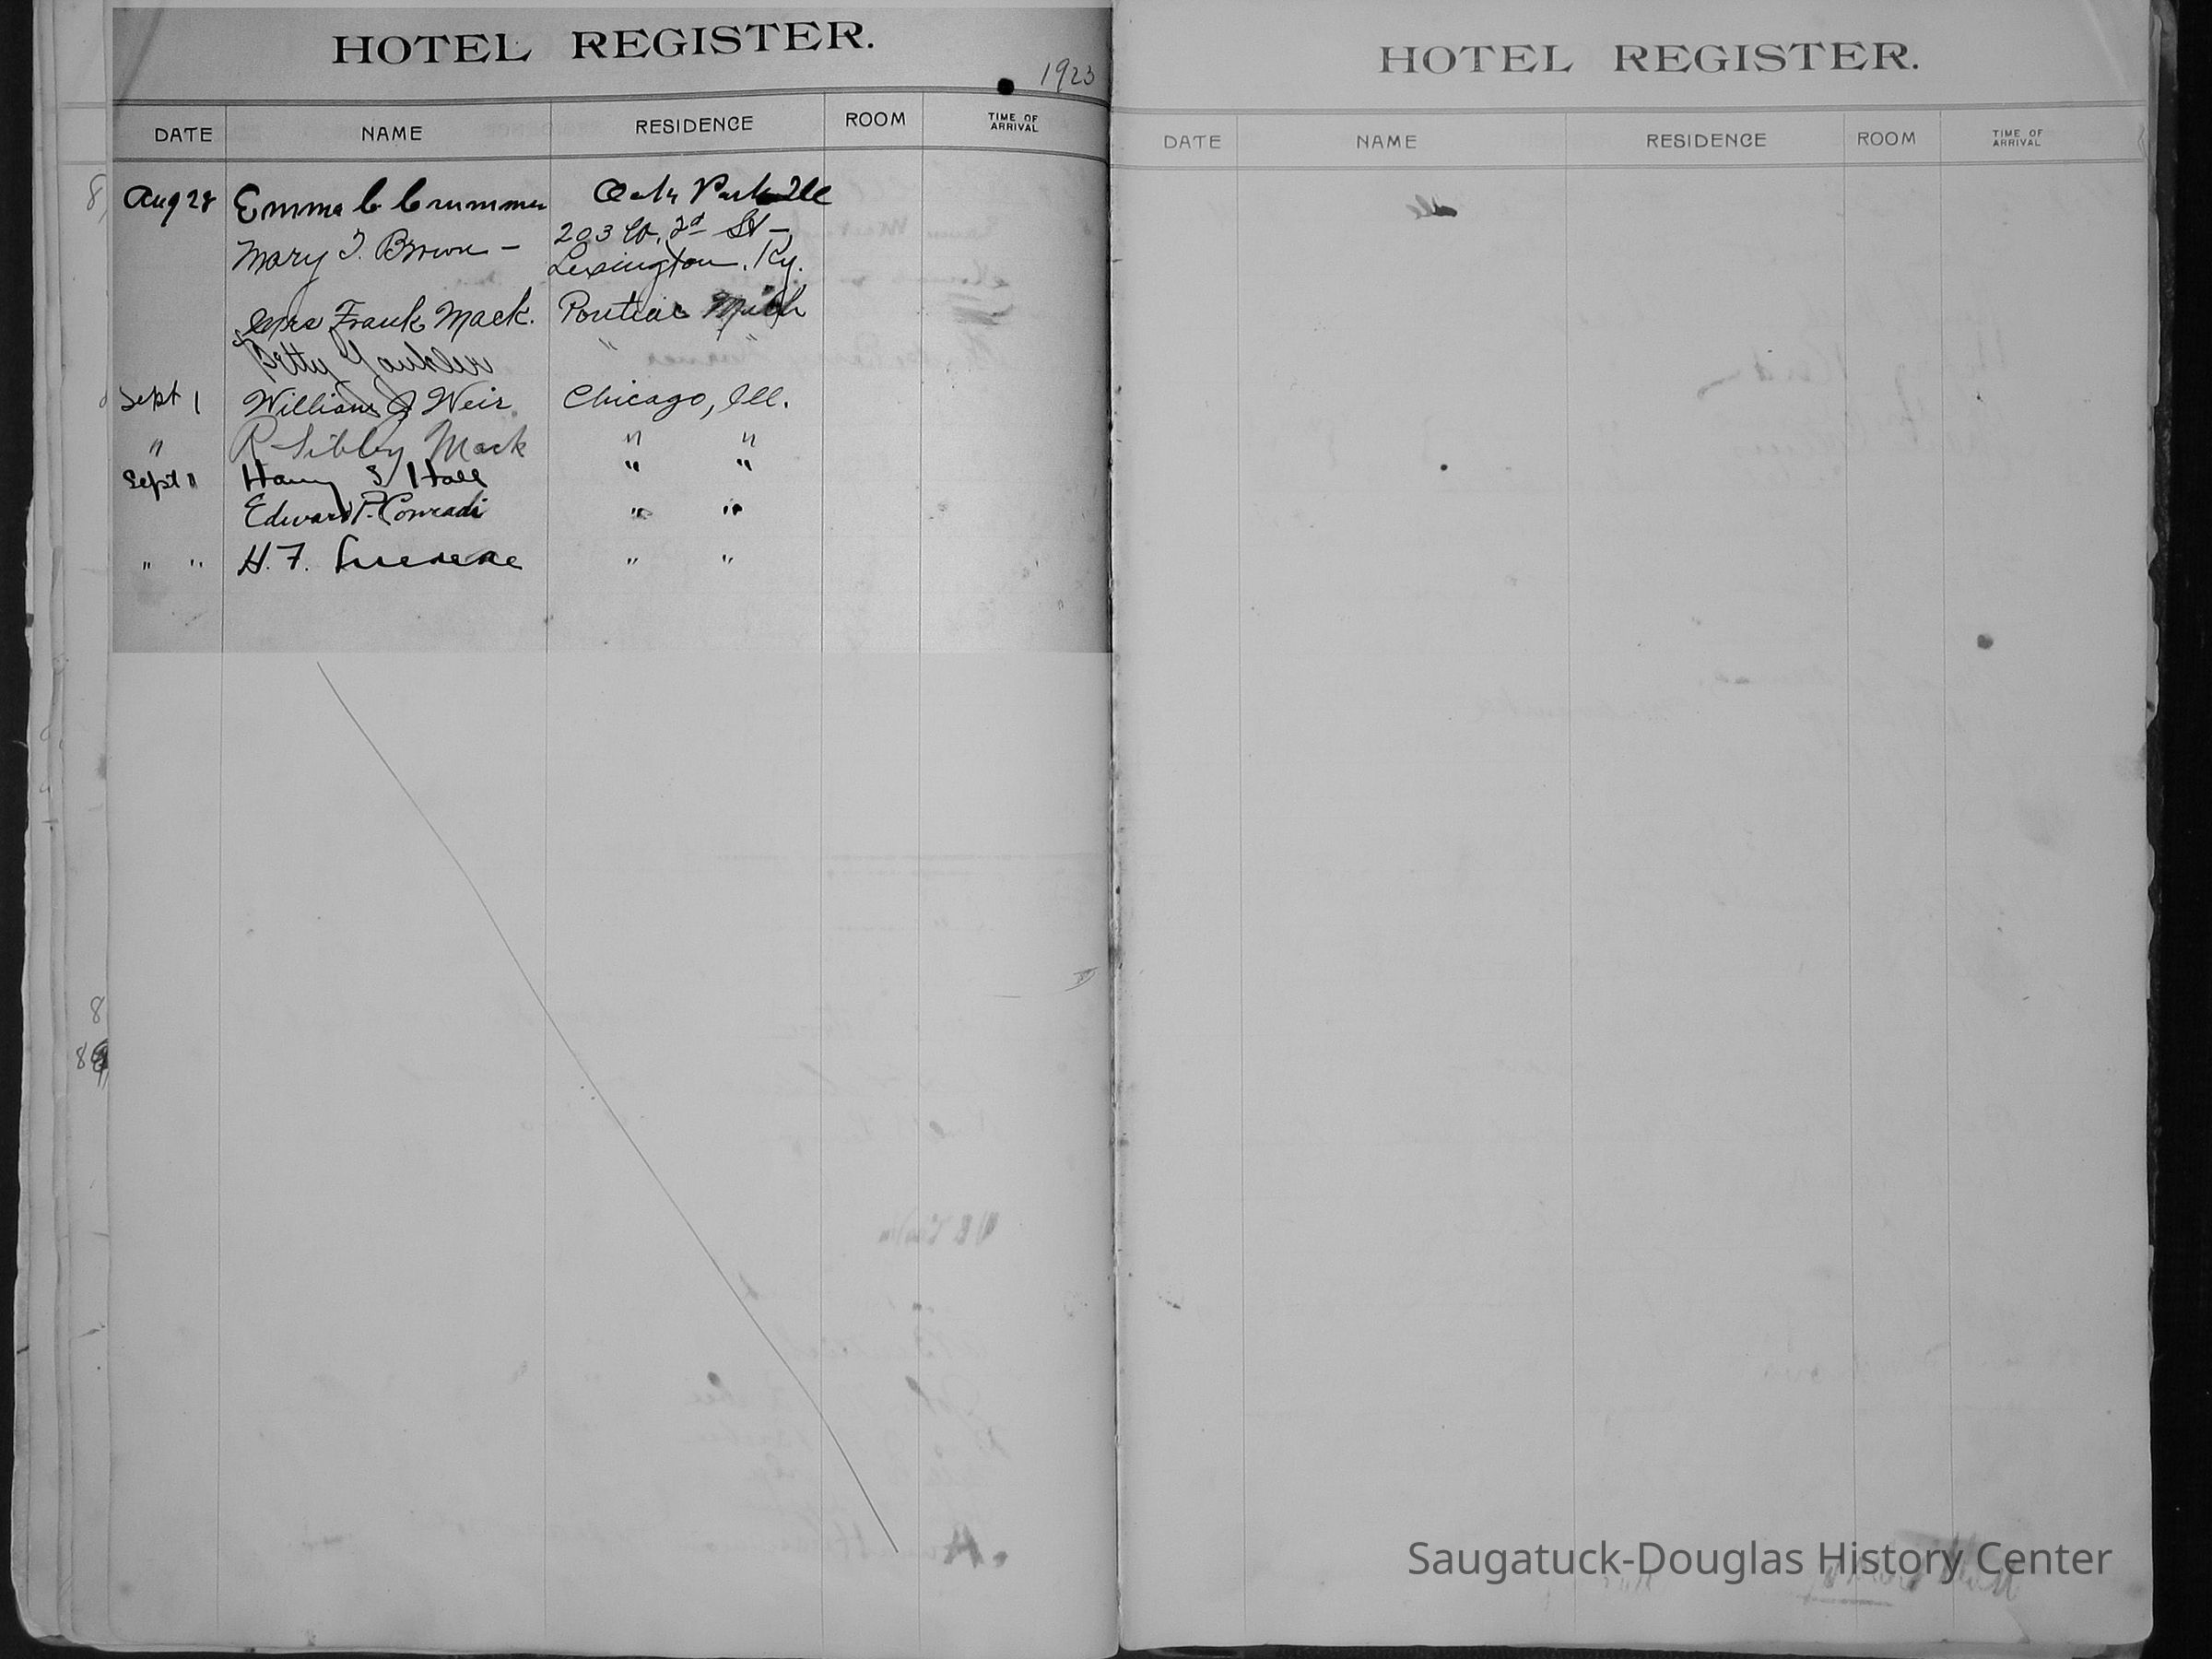 HOTEL REGISTER.
1923
DATE NAME RESIDENCE ROOM TIME OF ARRIVAL
Aug 28 Emma C Crummer Oak Park Ill
Mary T. Brown – 203 W. 2d St –
Lexington, Ky.
Mrs Frank Mack. Pontiac Mich
Betty " "
Sept 1 William J Weir Chicago, Ill.
" R Sibley Mack " "
Sept Harry S Hall " "
Edward P. Conradi " "
" " H. F. " "
HOTEL REGISTER.
DATE NAME RESIDENCE ROOM TIME OF ARRIVAL
Saugatuck-Douglas History Center